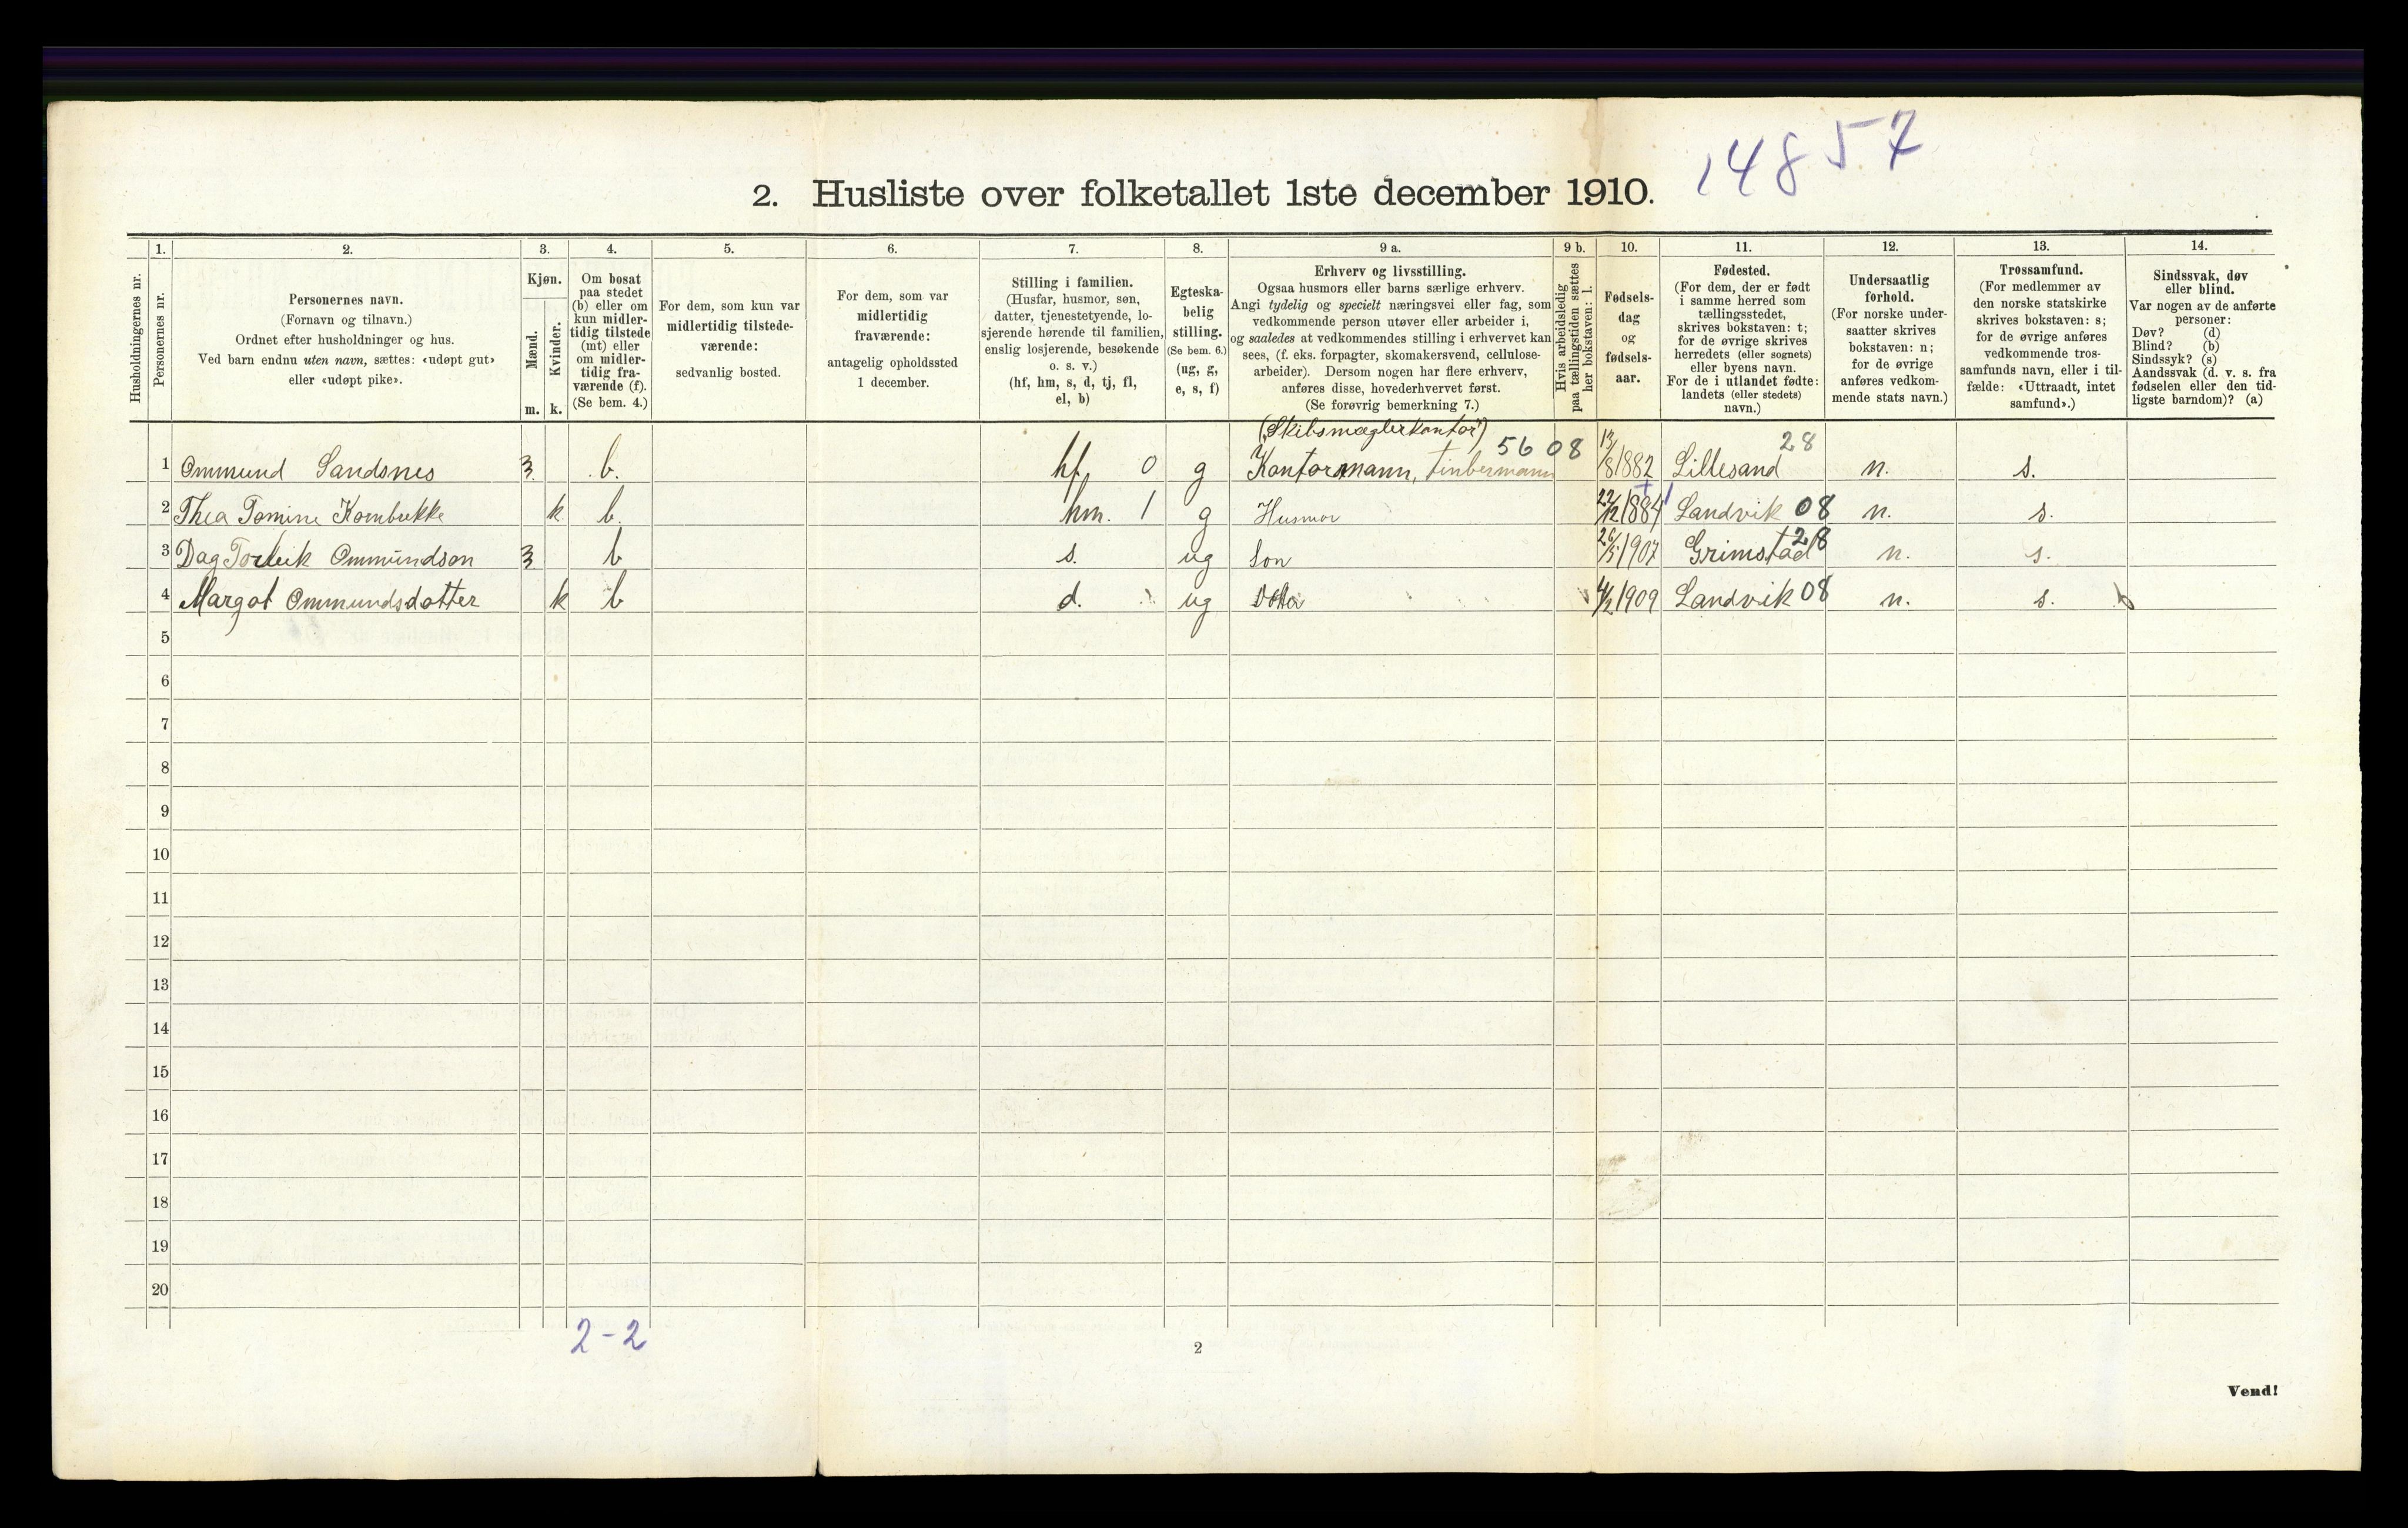 14857
2. Husliste over folketallet 1ste december 1910.
Husholdningernes nr.
1.
Personernes nr.
2.
Personernes navn.
(Fornavn og tilnavn.)
Ordnet efter husholdninger og hus.
Ved barn endnu uten navn, sættes: «udøpt gut»
eller «udøpt pike».
3.
Kjøn.
Mænd.
Kvinder.
m. k.
4.
Om bosat
paa stedet
(b) eller om
kun midler-
tidig tilstede
(mt) eller
om midler-
tidig fra-
værende (f).
(Se bem. 4.)
5.
For dem, som kun var
midlertidig tilstede-
værende:
sedvanlig bosted.
6.
For dem, som var
midlertidig
fraværende:
antagelig opholdssted
1 december.
7.
Stilling i familien.
(Husfar, husmor, søn,
datter, tjenestetyende, lo-
sjerende hørende til familien,
enslig losjerende, besøkende
o. s. v.)
(hf, hm, s, d, tj, fl,
el, b)
8.
Egteska-
belig
stilling.
(Se bem. 6.)
(ug, g,
e, s, f)
9 a.
Erhverv og livsstilling.
Ogsaa husmors eller barns særlige erhverv.
Angi tydelig og specielt næringsvei eller fag, som
vedkommende person utøver eller arbeider i,
og saaledes at vedkommendes stilling i erhvervet kan
sees, (f. eks. forpagter, skomakersvend, cellulose-
arbeider). Dersom nogen har flere erhverv,
anføres disse, hovederhvervet først.
(Se forøvrig bemerkning 7.)
9 b.
Hvis arbeidsledig
paa tællingstiden sættes
her bokstaven: l.
10.
Fødsels-
dag
og
fødsels-
aar.
11.
Fødested.
(For dem, der er født
i samme herred som
tællingsstedet,
skrives bokstaven: t;
for de øvrige skrives
herredets (eller sognets)
eller byens navn.
For de i utlandet fødte:
landets (eller stedets)
navn.)
12.
Undersaatlig
forhold.
(For norske under-
saatter skrives
bokstaven: n;
for de øvrige
anføres vedkom-
mende stats navn.)
13.
Trossamfund.
(For medlemmer av
den norske statskirke
skrives bokstaven: s;
for de øvrige anføres
vedkommende tros-
samfunds navn, eller i til-
fælde: «Uttraadt, intet
samfund».)
14.
Sindssvak, døv
eller blind.
Var nogen av de anførte
personer:
Døv? (d)
Blind? (b)
Sindssyk? (s)
Aandssvak (d. v. s. fra
fødselen eller den tid-
ligste barndom)? (a)
(Skibsmæglerkontor) 5608 28
1 Ommund Sandsnes b. hf 0 g Kontormann, tinbermann 13/8 1882 Lillesand n. s.
2 Thea Tomine k b. hm. 1 g Husmor 22/12 1884 Landvik 08 n. s.
3 Dag Torleik Ommundson b s. ug Son 26/5 1907 Grimstad 28 n. s.
4 Margot Ommundsdotter k b d. ug 4/2 1909 Landvik 08 n. s.
5
6
7
8
9
10
11
12
13
14
15
16
17
18
19
20
2-2
2
Vend!